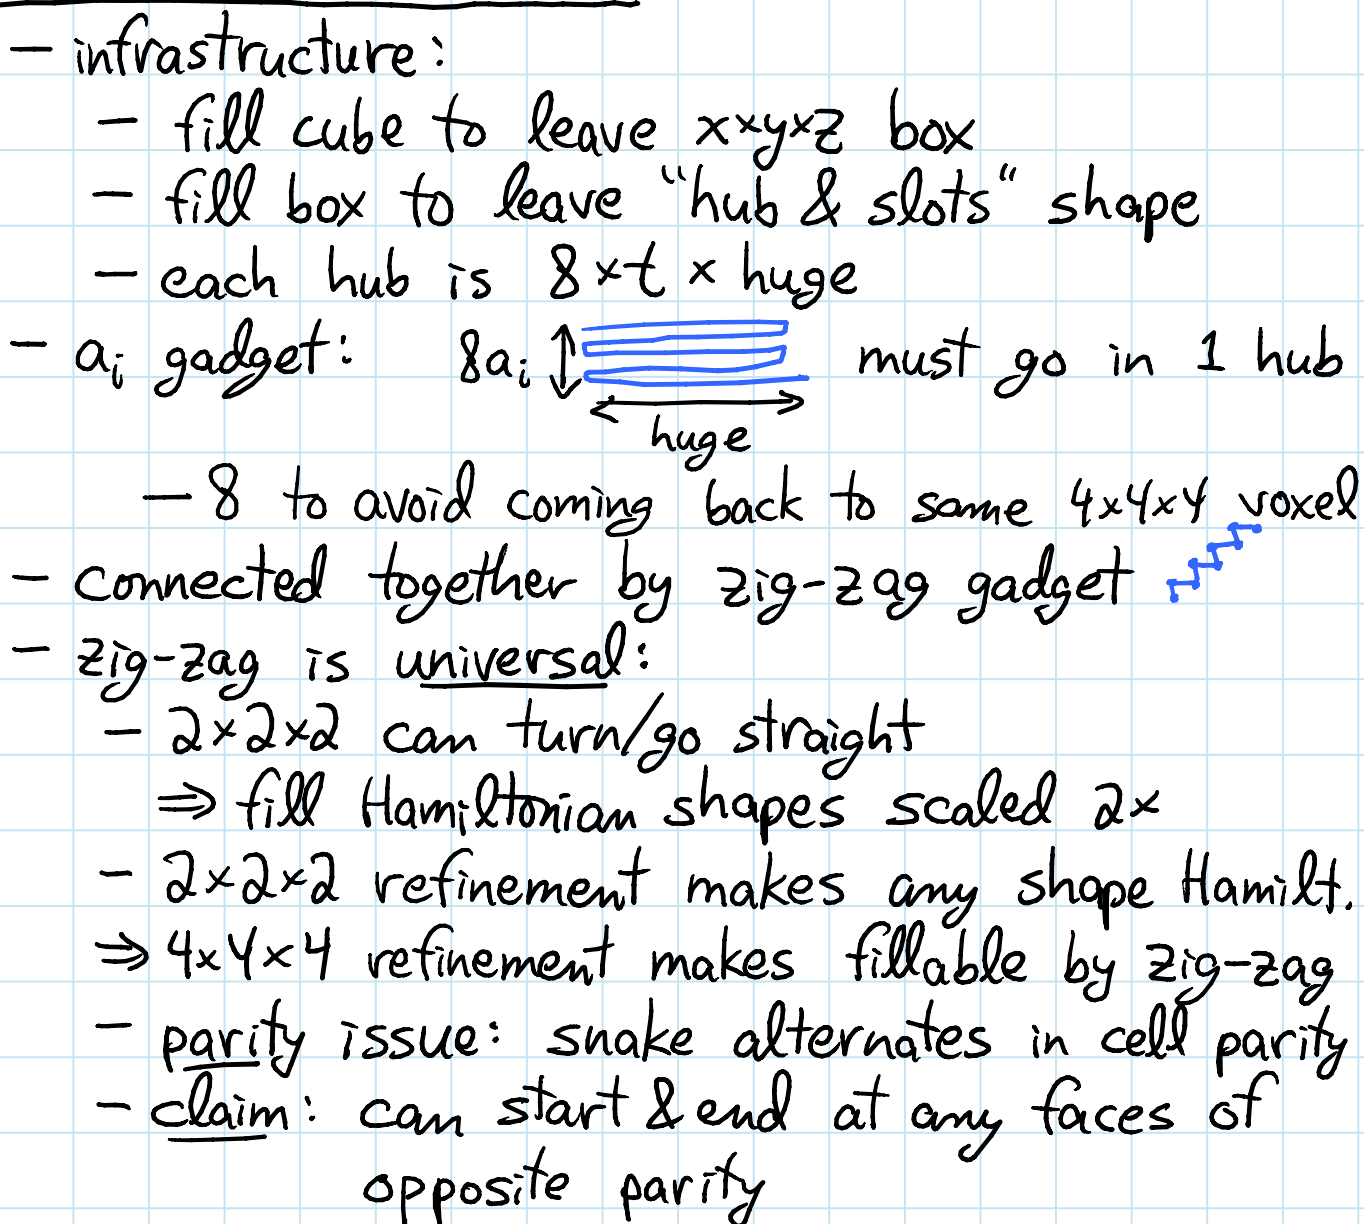 - infrastructure:
- fill cube to leave x×y×z box
- fill box to leave "hub & slots" shape
- each hub is 8×t×huge
- aᵢ gadget: 8aᵢ must go in 1 hub
huge
- 8 to avoid coming back to same 4×4×4 voxel
- connected together by zig-zag gadget
- zig-zag is universal:
- 2×2×2 can turn/go straight
⇒ fill Hamiltonian shapes scaled 2×
- 2×2×2 refinement makes any shape Hamilt.
⇒ 4×4×4 refinement makes fillable by zig-zag
- parity issue: snake alternates in cell parity
- claim: can start & end at any faces of
opposite parity